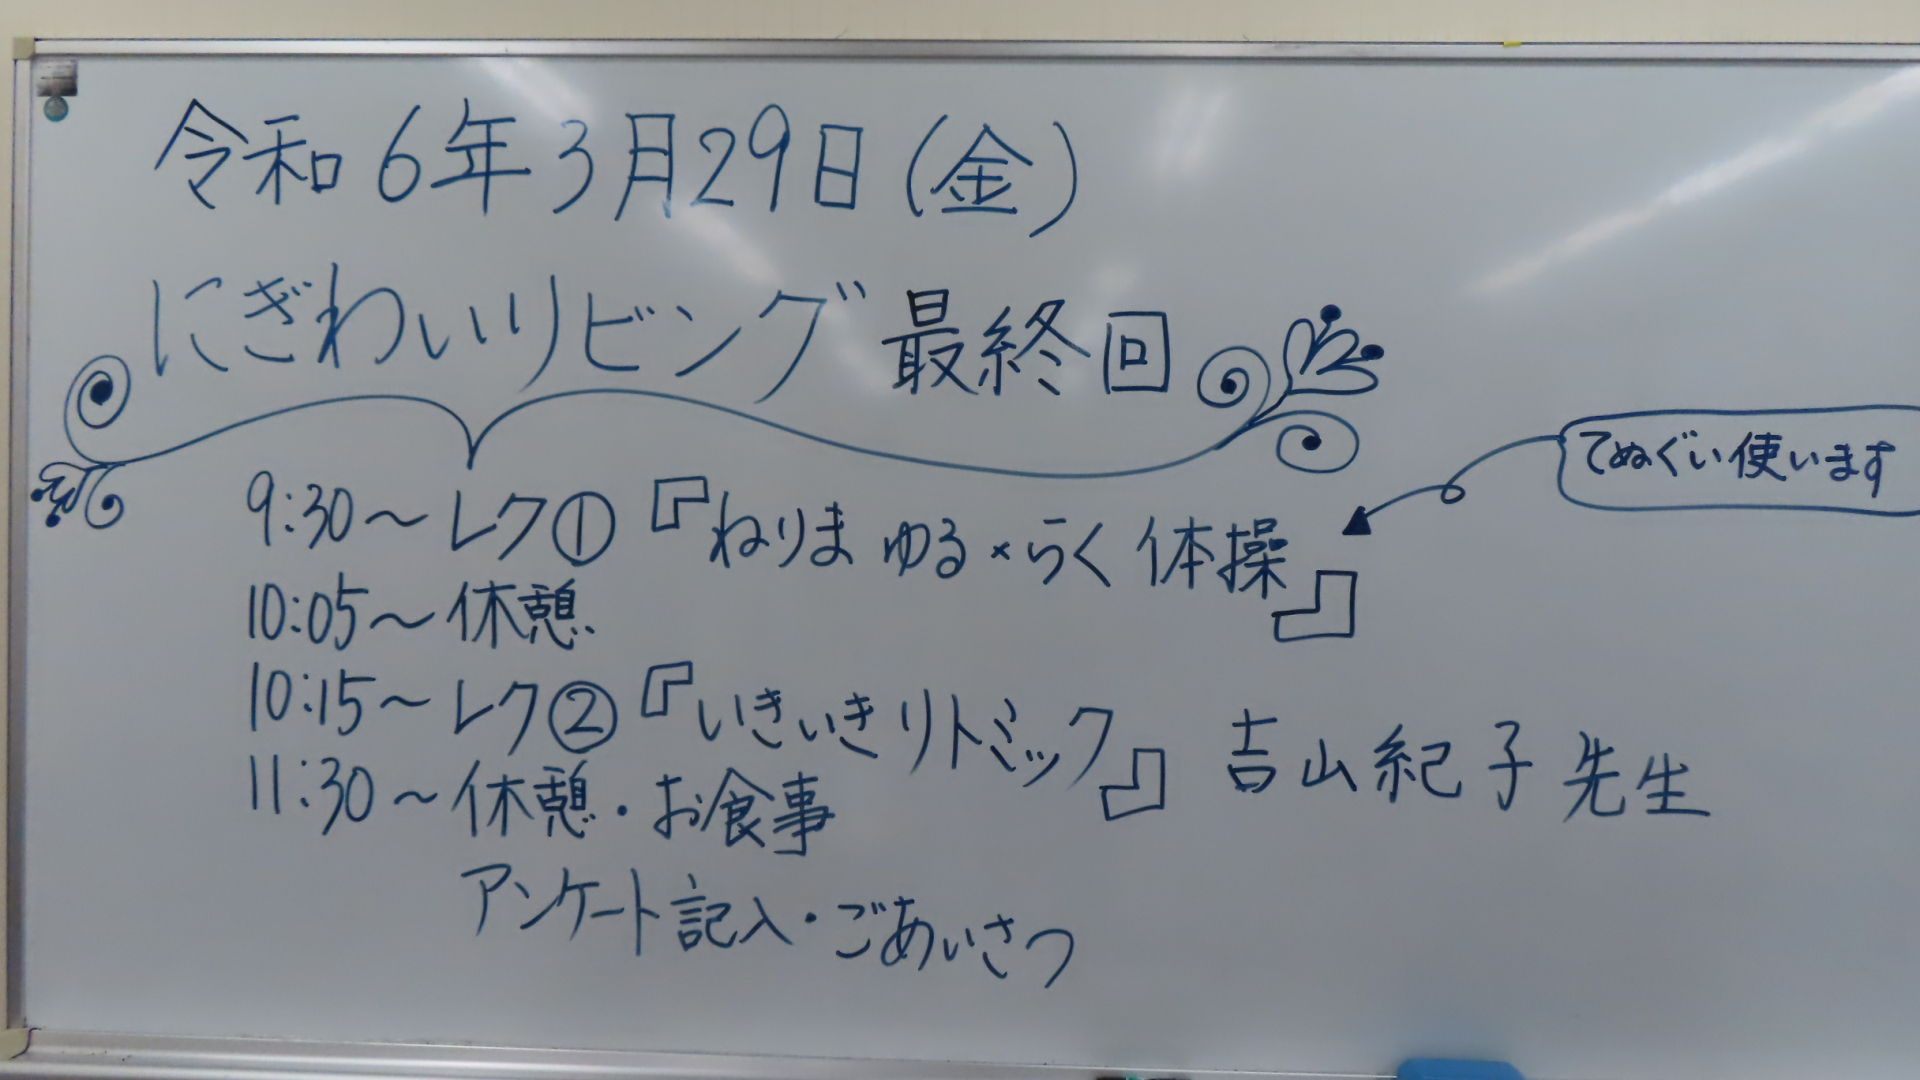 令和6年3月29日(金)
にぎわいリビング 最終回
てぬぐい使います
9:30～レク①『ねりま ゆる×らく 体操』
10:05～休憩
10:15～レク②『いきいきリトミック』 吉山紀子先生
11:30～休憩・お食事
アンケート記入・ごあいさつ